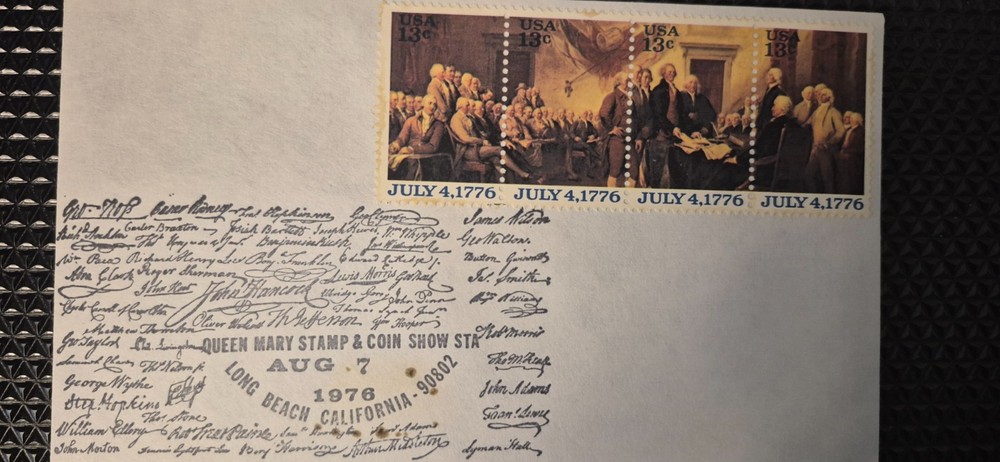 USA 13c USA 13c USA 13c USA 13c
JULY 4,1776 JULY 4,1776 JULY 4,1776 JULY 4,1776
Geo. Ross Caesar Rodney Geo Clymer James Wilson
Carter Braxton Josiah Bartlett Wm Whipple Geo Walton
Benjamin Rush Button Gwinnett
Wm Paca Richard Henry Lee Benj. Franklin
Abra Clark Roger Sherman Lewis Morris Geo Read Jas. Smith
John Hart John Hancock Elbridge Gerry John Penn
Charles Carroll of Carrollton Thomas Lynch Junr. Wm Williams
Matthew Thornton Oliver Wolcott Th Jefferson Wm Hooper
Geo Taylor Phil. Livingston QUEEN MARY STAMP & COIN SHOW STA Robt Morris
Samuel Chase Thos Nelson jr. AUG 7 Tho M. Kean
George Wythe 1976 John Adams
LONG BEACH, CALIFORNIA - 90802
Step. Hopkins Frans. Lewis
Thos Stone
William Ellery Robt Treat Paine Saml Huntington Saml Adams
John Morton Francis Lightfoot Lee Benj Harrison Arthur Middleton Lyman Hall